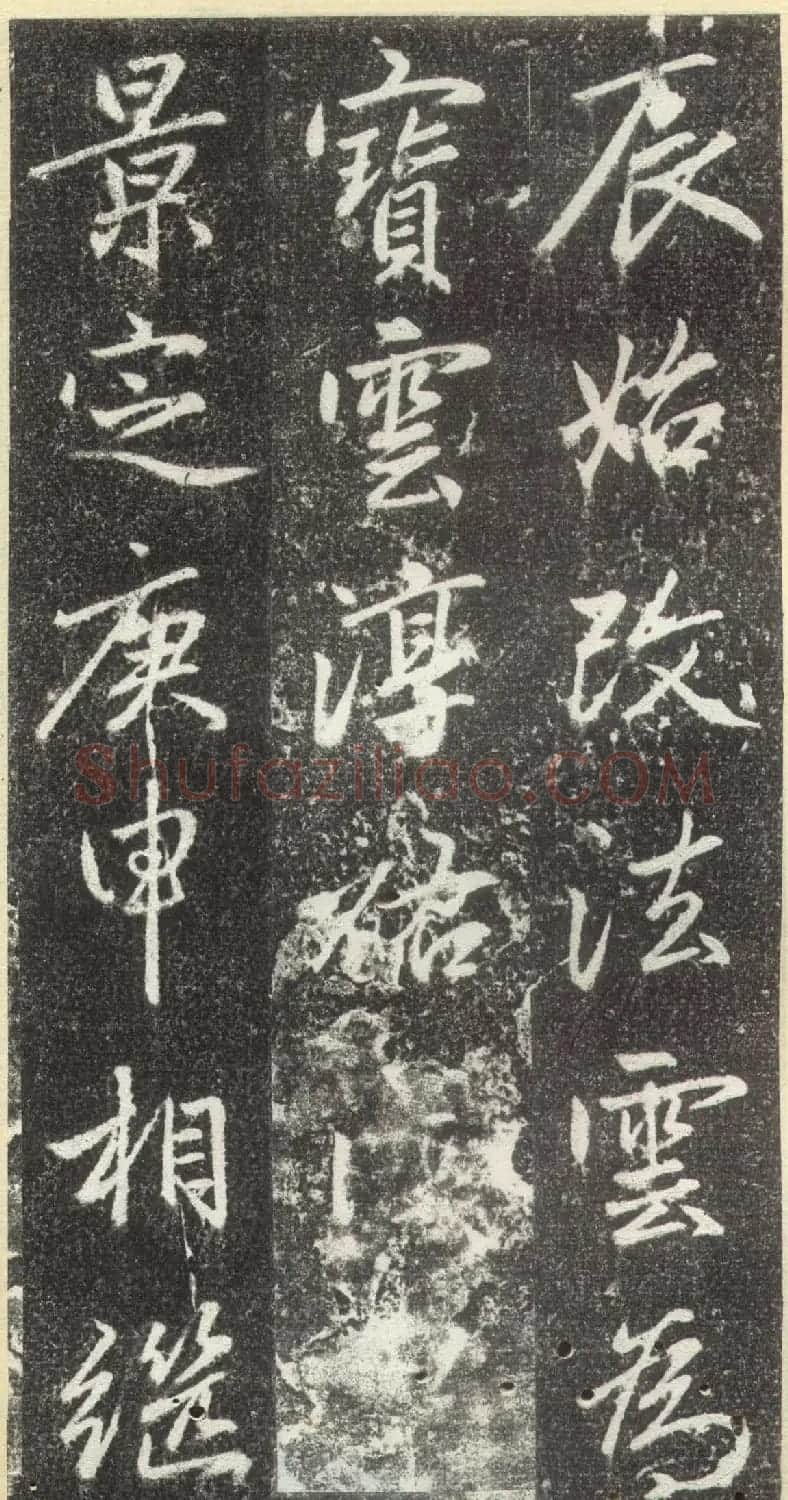 辰始改法雲為
寶雲淳祐
景定庚申相繼
Shufaziliao.COM